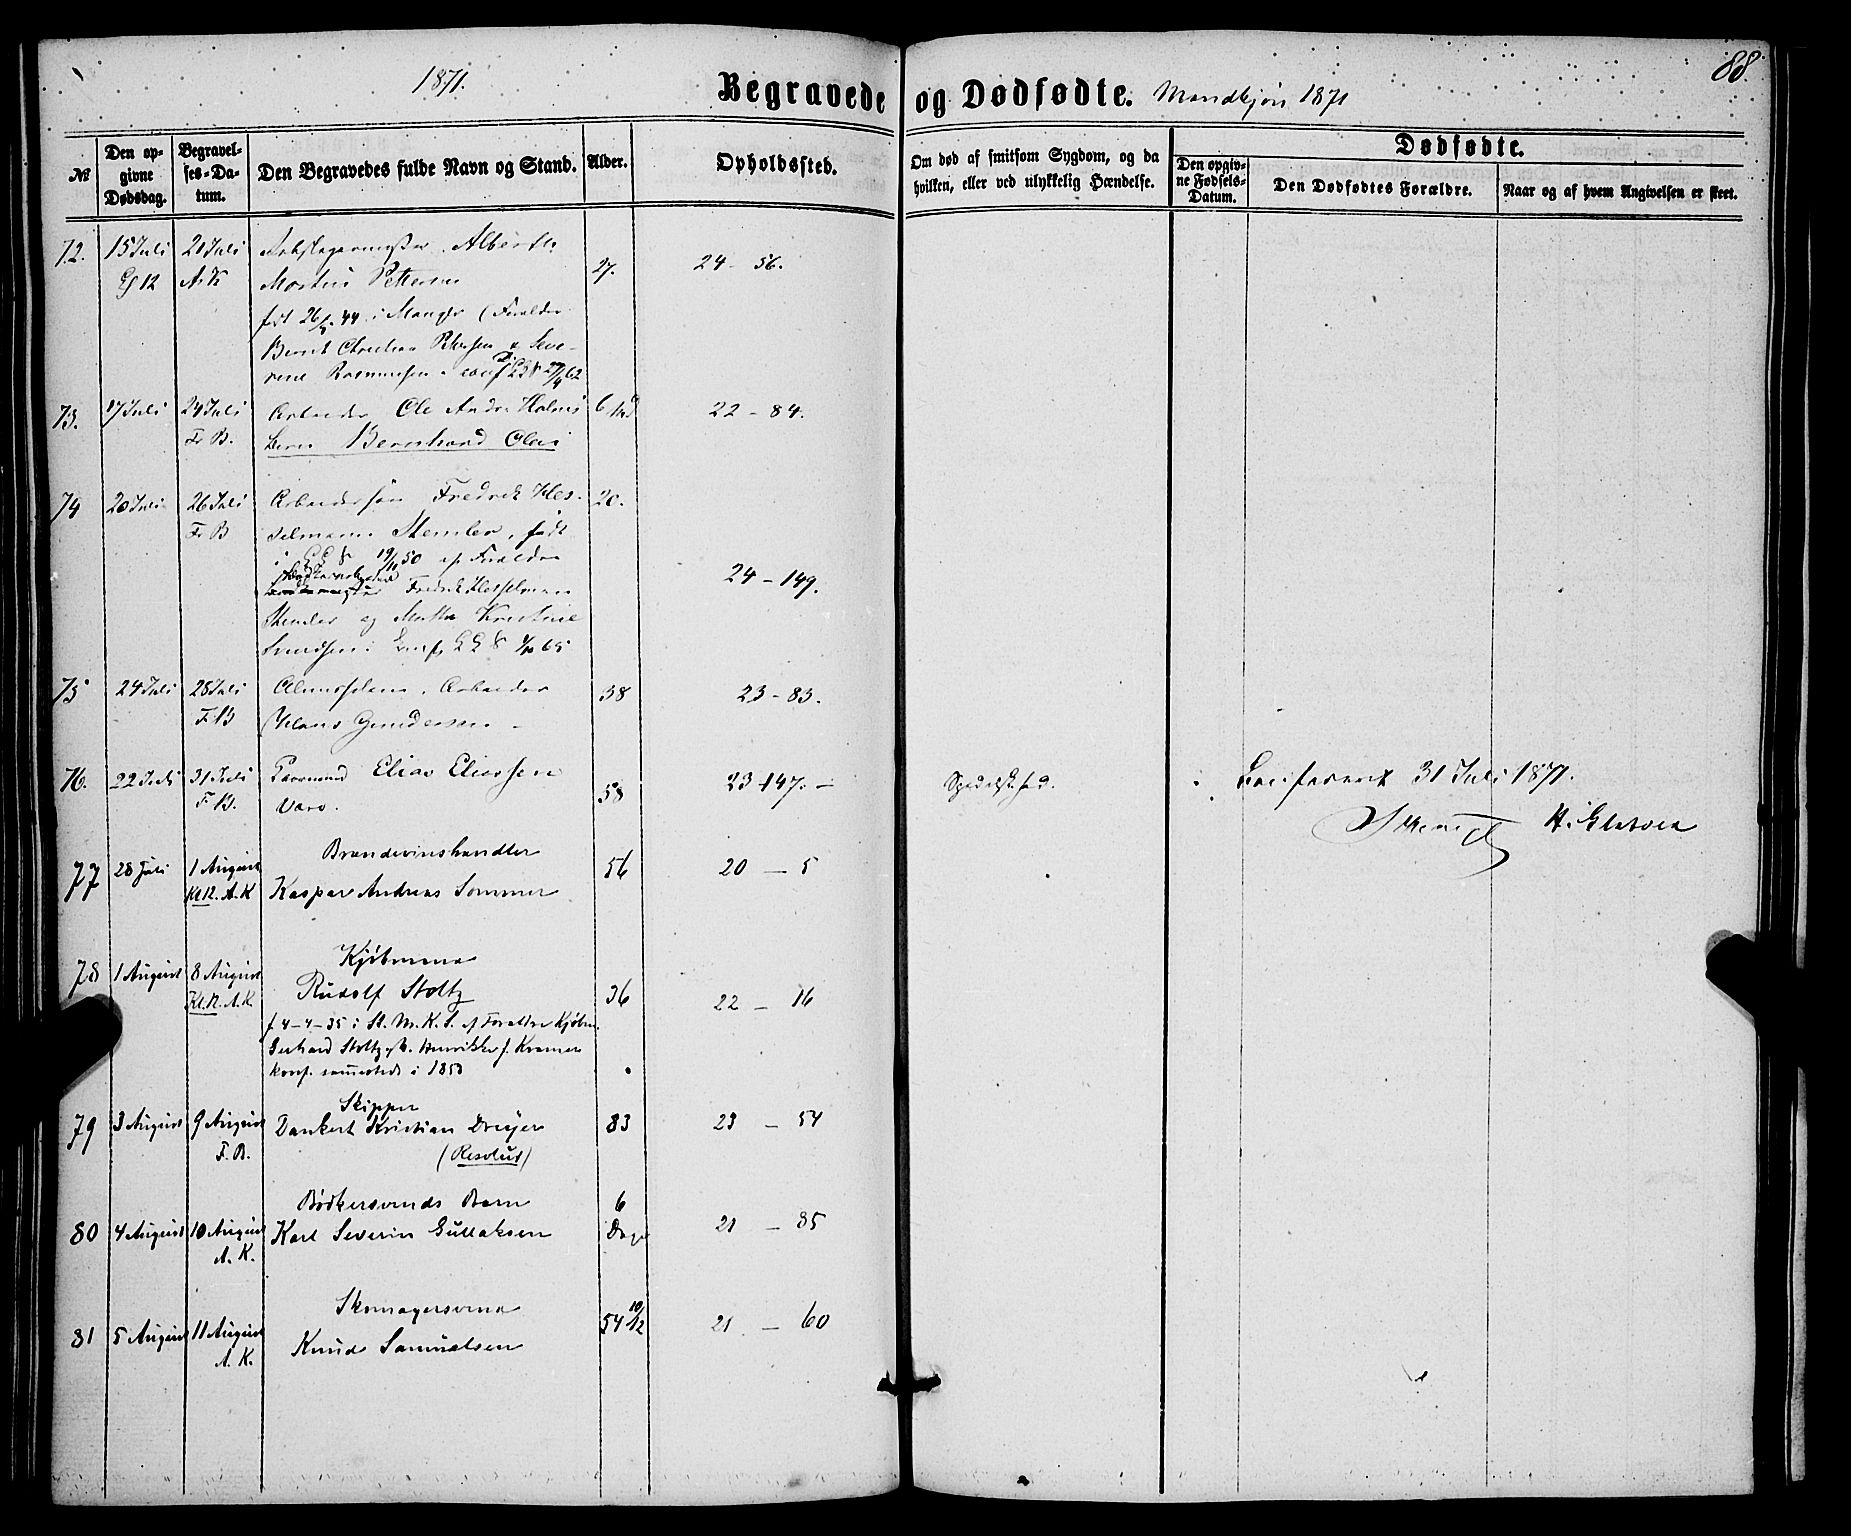 88.
1871.
Begravede og Dødfødte. Mandkjøn 1871
№
Den opgivne Dødsdag.
Begravelses-Datum.
Den Begravedes fulde Navn og Stand.
Alder.
Opholdssted.
Om død af smitsom Sygdom, og da hvilken, eller ved ulykkelig Hændelse.
Dødfødte.
Den opgivne Fødsels-Datum.
Den Dødfødtes Forældre.
Naar og af hvem Angivelsen er skeet.
72. 15 Juli 21 Juli Albert
A.K. Martin Pettersen 27. 24 - 56.
født 26/ 44 i Manger (Forældre
Bernt Christian Petersen & Seve-
rine Rasmussen 62
73. 17 Juli 24 Juli Arbeider Ole Andr. Holms 6 22 - 84.
F. B. barn Bernhard Olai
74 20 Juli 26 Juli Arbeidersøn Fredrik Hes- 20.
F. B selmann Stemler, født
i 19/11 50 af Forældre
Fredrik Hesselmann 24 - 149.
Stemler og Kristine
65
75 24 Juli 28 Juli Almisselem, Arbeider 38 23 - 83.
F. B Klaus Gundersen
76. 22 Juli 31 Juli Elias Eliassen 58 23 - 147. - Spedalskhed. 31 Juli 1871.
F. B. Varø.
77 28 Juli 1 August Brændevinshandler 56 20 - 5
Kl 12. A. K Kaspar Andreas Sommer
78 1 August 8 August Kjøbmand
Kl. 12. A. K. Rudolf Stoltz 36 22 - 16
f 4-4-35 i St. M. K. S. af Forældre Kjøbm.
Gerhard Stoltz og h. Henrikke f. Kramer
konf. sammesteds i 1850
79 3 August 9 August Skipper
Dankert Kristian Dreyer 83 23 - 54
F. B. (Resolut)
80 4 August 10 August Bødkersvends Barn 6
Karl Severin Gullaksen Dage 21 - 85
A. K.
81 5 August 11 August Skomagersvend 54 10/12 21 - 60
A. K. Knud Samuelsen